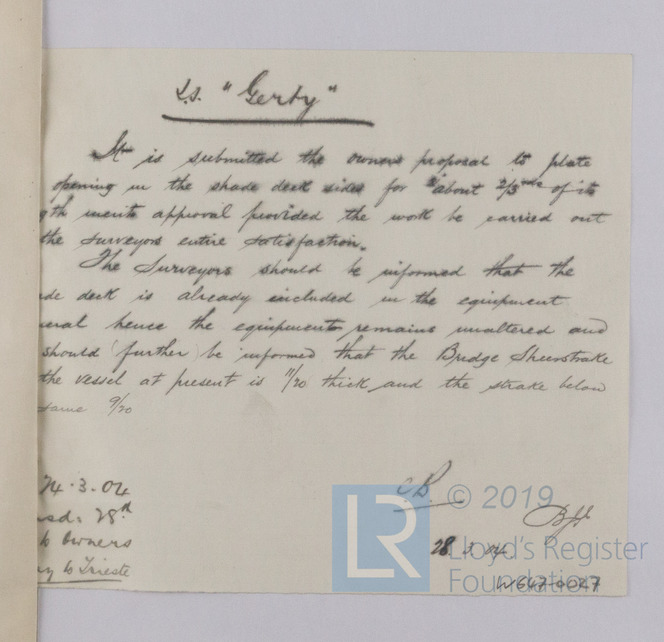 s.s. "Gerty"
It is submitted the owners proposal to plate
opening in the shade deck sides for about 2/3rds of its
gth merits approval provided the work be carried out
the surveyors entire satisfaction.
The Surveyors should be informed that the
de deck is already included in the equipment
eral hence the equipment remains unaltered and
should further be informed that the Bridge Sheerstrake
the vessel at present is 11/20 thick and the strake below
same 9/20
CB.
24.3.04
28th
28.3.04
to owners
to Trieste
W647-0027
© 2019
Lloyd's Register
Foundation
LR